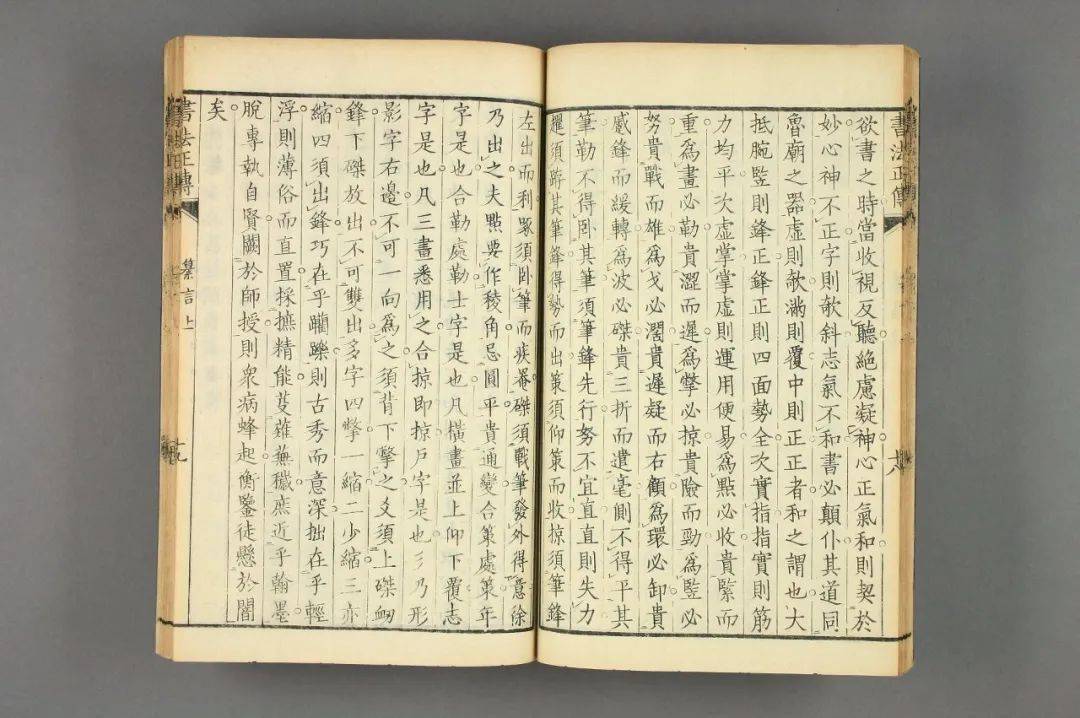 書法正傳
十八
欲書之時當收視反聽絶慮凝神心正氣和則契於
妙心神不正字則欹斜志氣不和書必顛仆其道同
魯廟之器虛則欹滿則覆中則正正者和之謂也大
抵腕竪則鋒正鋒正則四面勢全次實指指實則筋
力均平次虛掌掌虛則運用便易爲點必收貴緊而
重爲畫必勒貴澀而遲爲撆必掠貴險而勁爲竪必
努貴戰而雄爲戈必濶貴遲疑而右顧爲環必卸貴
蹙鋒而緩轉爲波必磔貴三折而遣毫側不得平其
筆勒不得卧其筆須筆鋒先行努不宜直直則失力
趯須蹲其筆鋒得勢而出策須仰策而收掠須筆鋒
左出而利啄須卧筆而疾罨磔須戰筆發外得意徐
乃出之夫㸃要作稜角忌圓平貴通變合策處策年
字是也合勒處勒士字是也凡橫畫並上仰下覆志
字是也凡三畫悉用之合掠即掠戶字是也彡乃形
影字右邊不可一向爲之須背下撆之爻須上磔衂
鋒下磔放出不可雙出多字四撆一縮二少縮三亦
縮四須出鋒巧在乎躪躒則古秀而意深拙在乎輕
浮則薄俗而直置採摭精能芟薙蕪穢庶近乎翰墨
脫專執自賢闕於師授則衆病蜂起衡鑒徒懸於闇
矣
書法正傳
纂言上
十九